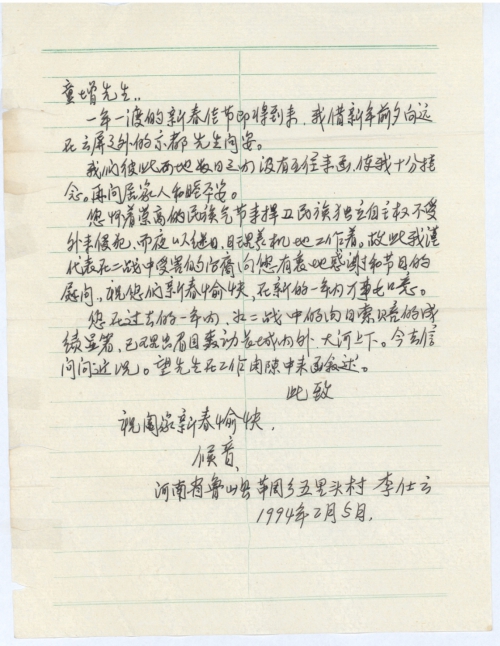 童增先生：
一年一渡的新春佳节即将到来，我借新年前夕向远
在云屏之外的京都先生问安。
我们彼此两地数日之内没有互往来函，使我十分挂
念。再问居家人和睦平安。
您怀着崇高的民族气节来捍卫民族独立自主权不受
外来侵犯，而夜以继日，地工作着。故此我谨
代表在二战中受害的向您有衷地感谢和节日的
慰问，祝您们新春愉快，在新的一年内万事如意。
您在过去的一年内，二战中的向日索赔的成
绩显著，已轰动长城内外大河上下。今去信
问问近况。望先生在工作闲隙中来函叙述。
此致
祝阖家新春愉快，
候音、
河南省鲁山县乡五里头村 李仕云
1994年2月5日，